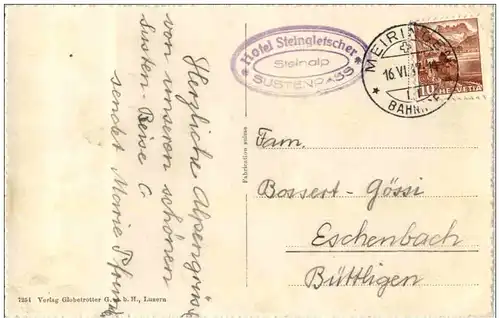 Herzliche Alpengrüsse
von unseren schönen
Susten Reise
sendet Marie
* Hotel Steingletscher *
Steinalp
SUSTENPASS
MEIRINGEN
16.VI.
10 HELVETIA
Fabrication suisse
Fam.
Bossert-Gössi
Eschenbach
Büttligen
7254 Verlag Globetrotter G. m. b. H., Luzern